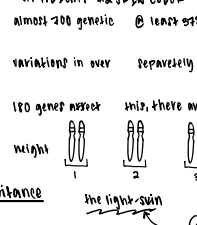 almost 700 genetic @ least 37
variations in over separetely
180 genes affect this, there a
height
1 2 3
itance
the light-skin